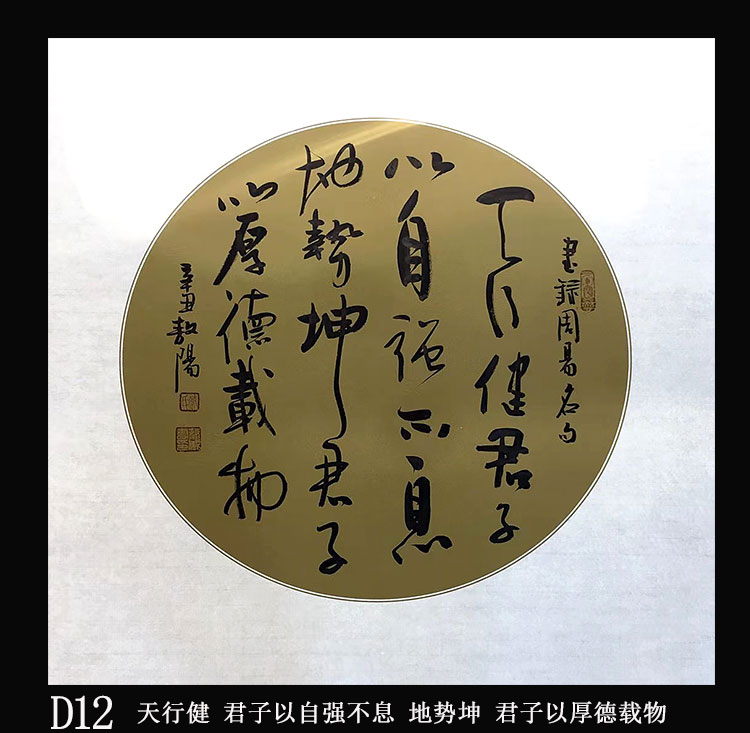 书录周易名句
天行健君子
以自强不息
地势坤君子
以厚德載物
辛丑敖陽
D12 天行健 君子以自强不息 地势坤 君子以厚德载物